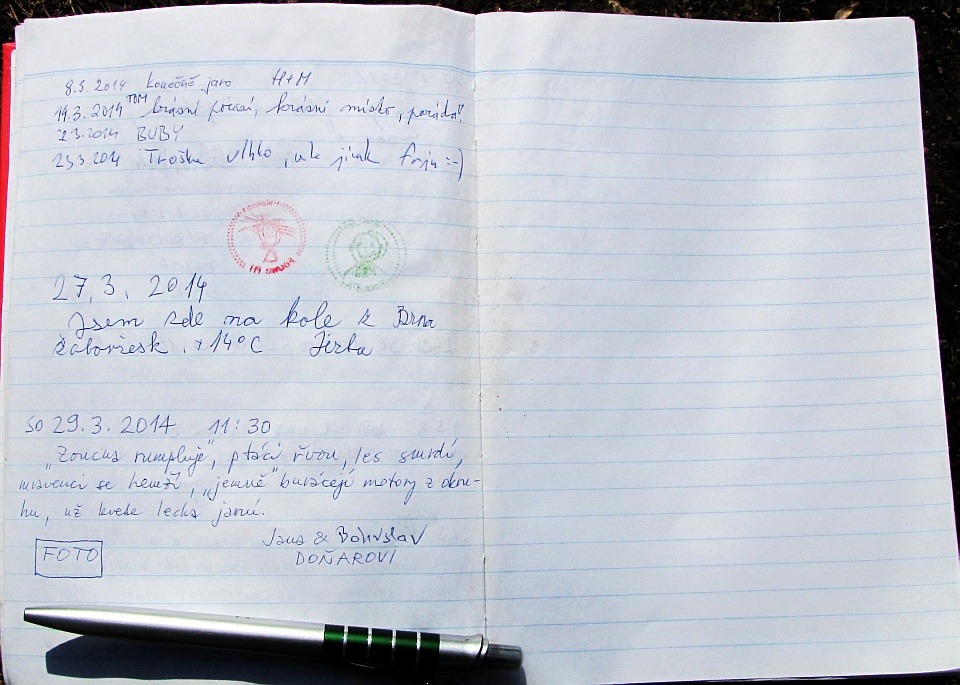 8.3.2014 Konečně jaro H+M
14.3.2014 TOM krásní počasí, krásní místo, paráda!!
2014 BUBY
23.3.2014 Troška vlhko, ale jinak fajn :-)
27.3.2014
Jsem zde na kole z Brna
Žabovřesk. +14°C Jirka
SO 29.3.2014 11:30
"Zoncna rumpluje", ptáci řvou, les smrdí,
mravenci se hemží, "jemně" burácejí motory z okru-
hu, už kvete lecks jarní.
Jana & Bohuslav
DOŇAROVI
FOTO